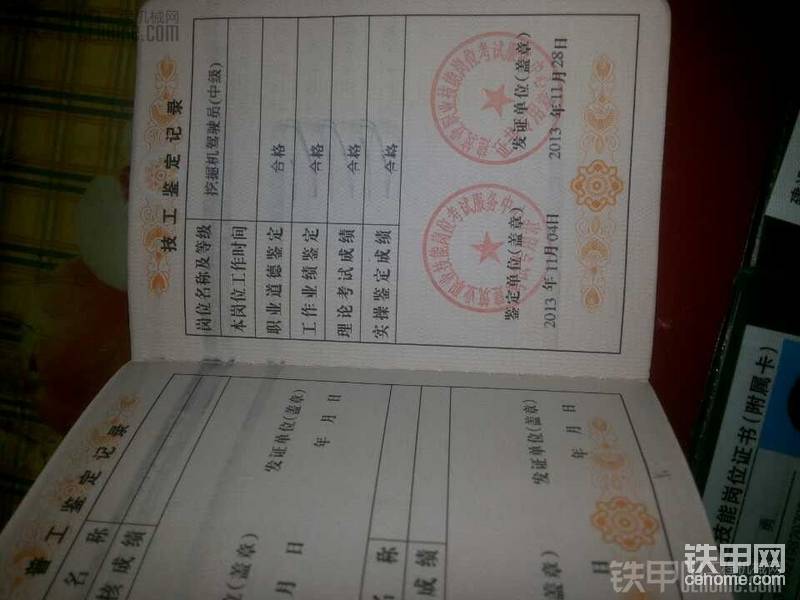 技工鉴定记录
岗位名称及等级 挖掘机驾驶员(中级)
本岗位工作时间
职业道德鉴定 合格
工作业绩鉴定 合格
理论考试成绩 合格
实操鉴定成绩 合格
鉴定单位(盖章) 发证单位(盖章)
2013年11月04日 2013年11月28日
职业技能岗位考试服务中
普工鉴定记录
名称
核成绩
发证单位(盖章)
年 月 日
(盖章)
月 日
称
成绩
发证单位(盖章)
年 月 日
盖章)
日
技能岗位证书(附属卡)
铁甲网
铁甲网
cehome.com